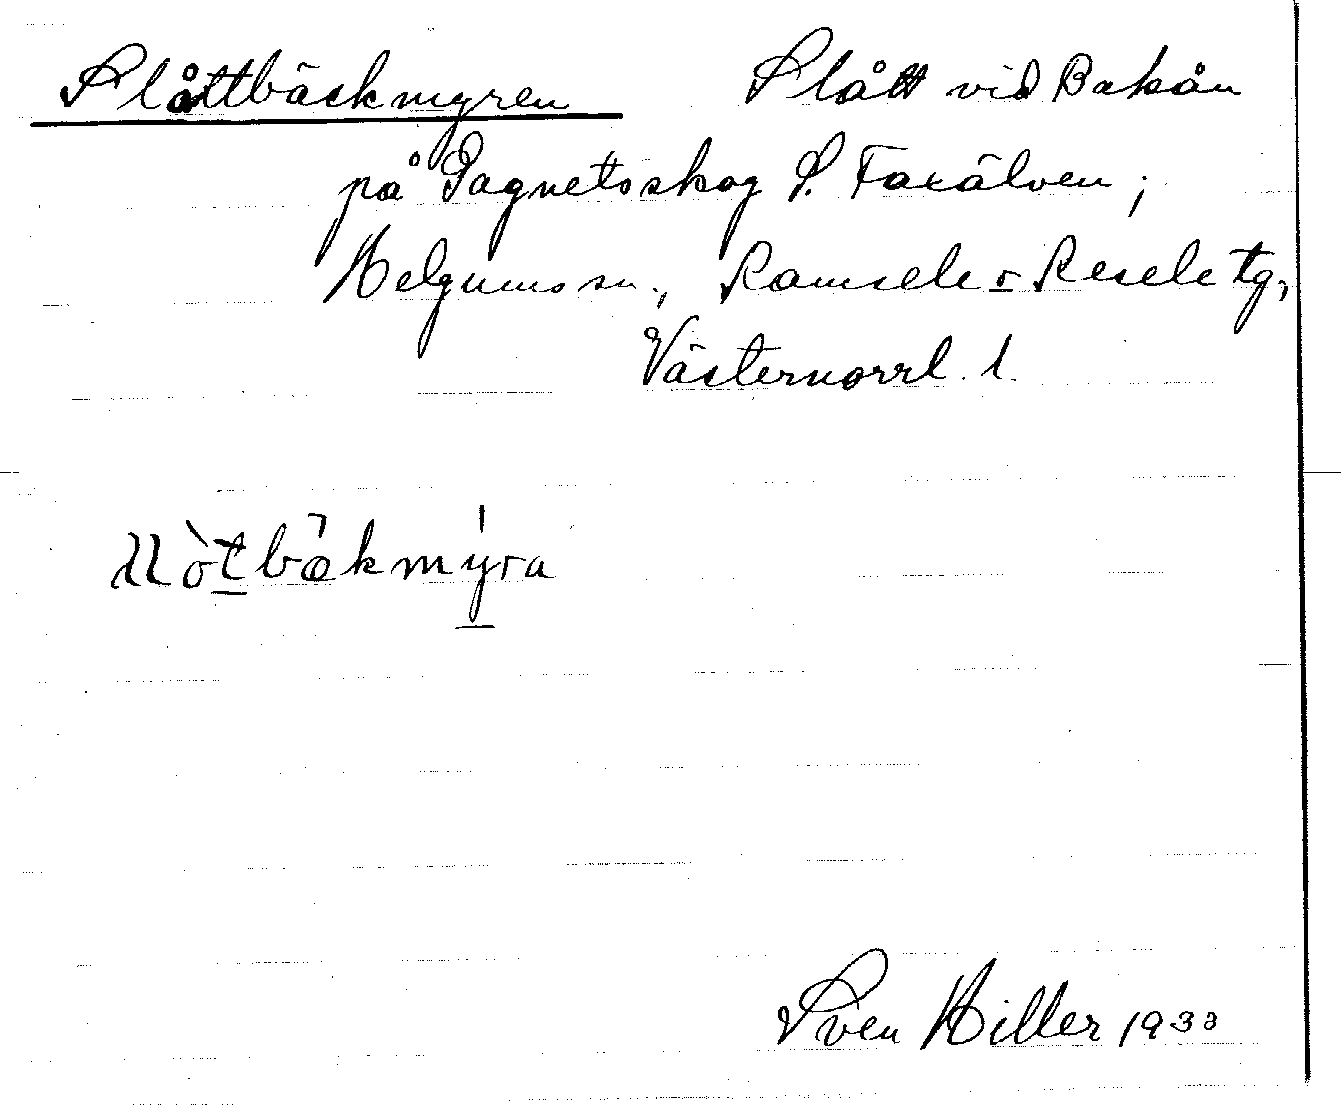 Slåttbäckmyren Slått vid Bakån
på Pagnetsskog S. Faxälven;
Helgums sn., Ramsele o Resele tg,
Västernorrl. l.
Sven Hiller 1933